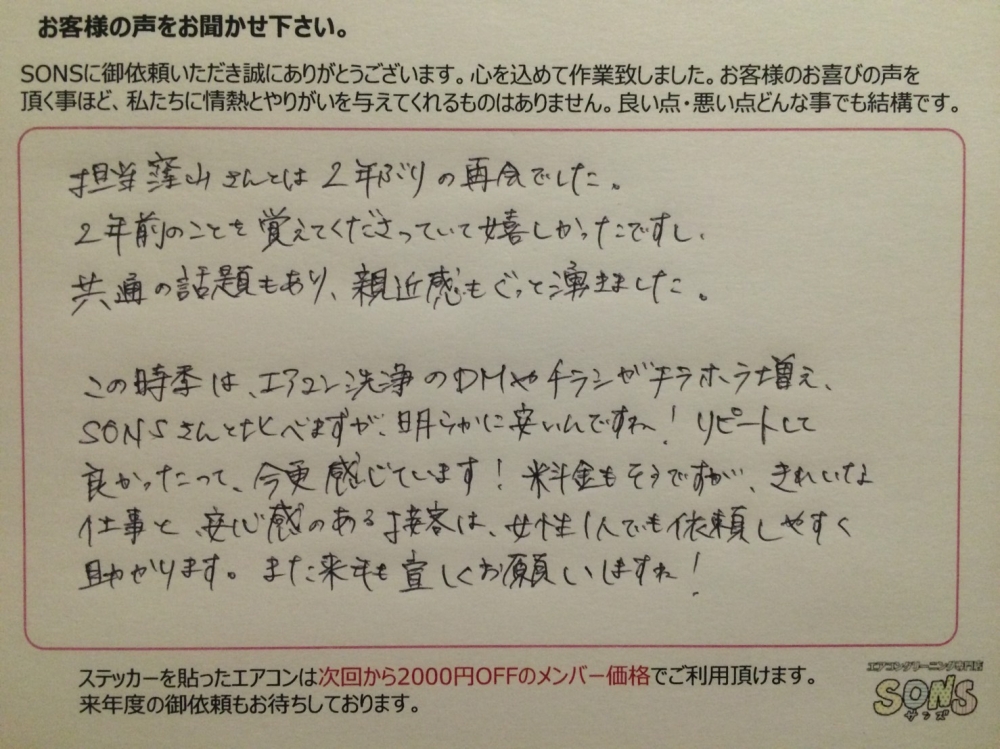 お客様の声をお聞かせ下さい。
SONSに御依頼いただき誠にありがとうございます。心を込めて作業致しました。お客様のお喜びの声を
頂く事ほど、私たちに情熱とやりがいを与えてくれるものはありません。良い点・悪い点どんな事でも結構です。
担当窪山さんとは2年ぶりの再会でした。
2年前のことを覚えてくださっていて嬉しかったですし、
共通の話題もあり、親近感もぐっと湧きました。
この時季は、エアコン洗浄のDMやチラシがチラホラ増え、
SONSさんと比べますが、明らかに安いんですね!リピートして
良かったって、今更感じています!料金もそうですが、きれいな
仕事と、安心感のある接客は、女性1人でも依頼しやすく
助かります。また来年も宜しくお願いしますね!
ステッカーを貼ったエアコンは次回から2000円OFFのメンバー価格でご利用頂けます。
来年度の御依頼もお待ちしております。
エアコンクリーニング専門店
SONS
サンズ